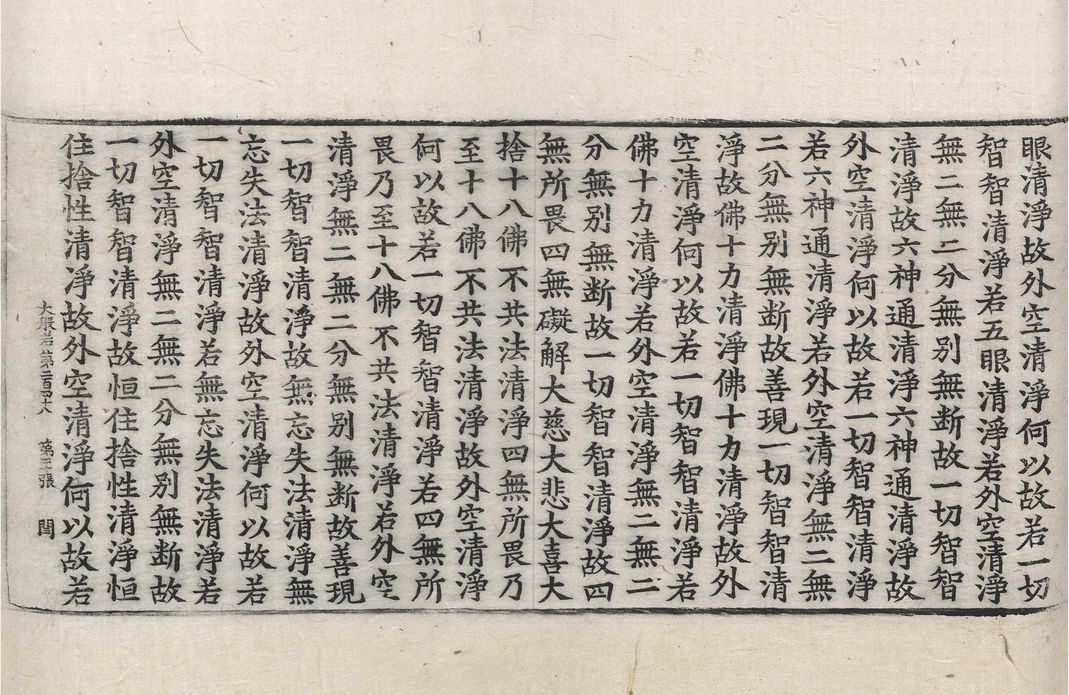 眼清淨故外空清淨何以故若一切
智智清淨若五眼清淨若外空清淨
無二無二分無別無断故一切智智
清淨故六神通清淨六神通清淨故
外空清淨何以故若一切智智清淨
若六神通清淨若外空清淨無二無
二分無別無断故善現一切智智清
淨故佛十力清淨佛十力清淨故外
空清淨何以故若一切智智清淨若
佛十力清淨若外空清淨無二無二
分無別無断故一切智智清淨故四
無所畏四無礙解大慈大悲大喜大
捨十八佛不共法清淨四無所畏乃
至十八佛不共法清淨故外空清淨
何以故若一切智智清淨若四無所
畏乃至十八佛不共法清淨若外空
清淨無二無二分無別無断故善現
一切智智清淨故無忘失法清淨無
忘失法清淨故外空清淨何以故若
一切智智清淨若無忘失法清淨若
外空清淨無二無二分無別無断故
一切智智清淨故恒住捨性清淨恒
住捨性清淨故外空清淨何以故若
大般若第二百四六 第三張 閏